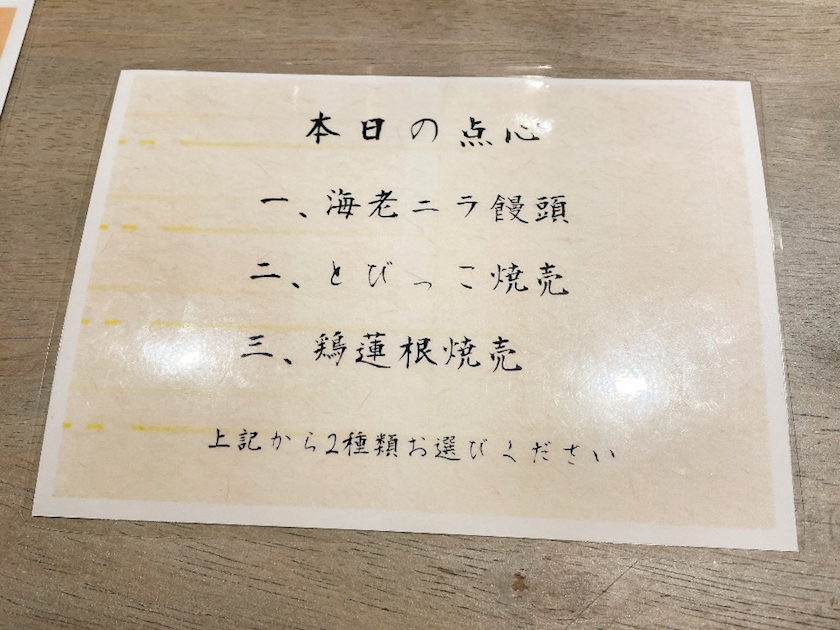 本日の点心
一、海老ニラ饅頭
二、とびっこ焼売
三、鶏蓮根焼売
上記から2種類お選びください